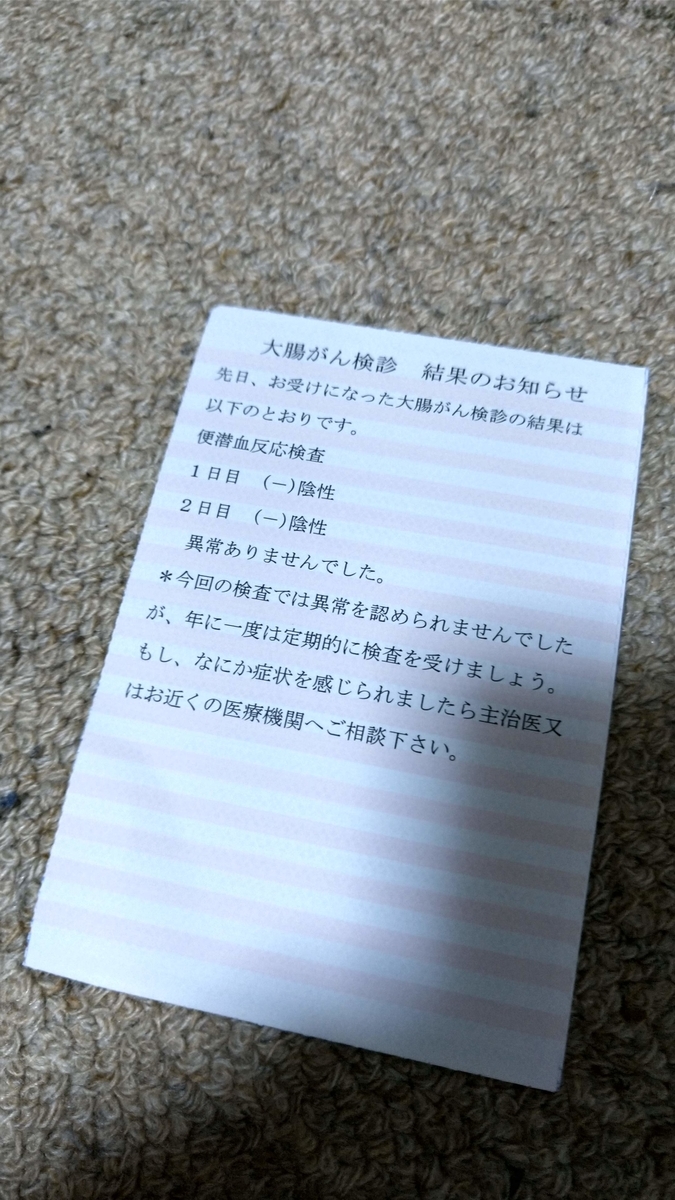 大腸がん検診　結果のお知らせ
先日、お受けになった大腸がん検診の結果は
以下のとおりです。
便潜血反応検査
１日目　(－)陰性
２日目　(－)陰性
異常ありませんでした。
＊今回の検査では異常を認められませんでした
が、年に一度は定期的に検査を受けましょう。
もし、なにか症状を感じられましたら主治医又
はお近くの医療機関へご相談下さい。